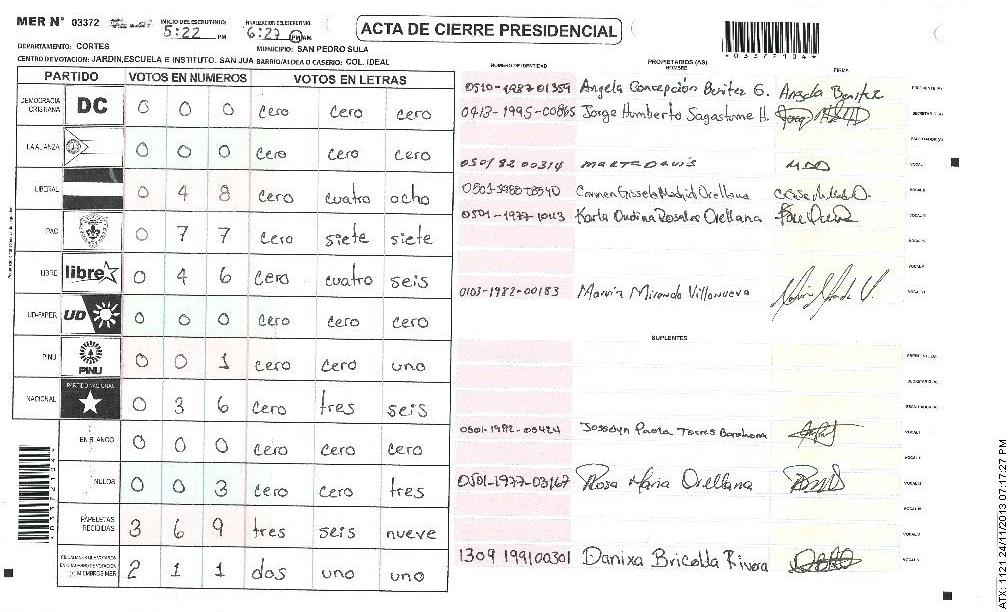 MER N° 03372
INICIO DEL ESCRUTINIO: 5:22 PM
FINALIZACION DEL ESCRUTINIO: 6:27 PM AM
ACTA DE CIERRE PRESIDENCIAL
*03372104*
DEPARTAMENTO: CORTES
MUNICIPIO: SAN PEDRO SULA
CENTRO DE VOTACION: JARDIN,ESCUELA E INSTITUTO. SAN JUA BARRIO/ALDEA O CASERIO: COL. IDEAL
PARTIDO VOTOS EN NUMEROS VOTOS EN LETRAS
DEMOCRACIA CRISTIANA DC 0 0 0 cero cero cero
LA ALIANZA 0 0 0 cero cero cero
LIBERAL 0 4 8 cero cuatro ocho
PAC 0 7 7 cero siete siete
LIBRE libre 0 4 6 cero cuatro seis
UD-FAPER UD 0 0 0 cero cero cero
PINU PINU 0 0 1 cero cero uno
NACIONAL PARTIDO NACIONAL 0 3 6 cero tres seis
EN BLANCO 0 0 0 cero cero cero
NULOS 0 0 3 cero cero tres
PAPELETAS RECIBIDAS 3 6 9 tres seis nueve
MIEMBROS MER 2 1 1 dos uno uno
NUMERO DE IDENTIDAD PROPIETARIOS (AS) NOMBRE FIRMA
0510-1987-01359 Angela Concepción Benitez G. Angela Benitez
0413-1995-00865 Jorge Humberto Sagastume H.
0501 82 00314
Carmen Gissela Madrid Orellana
0501-1977-10113 Karla Ondina Rosales Orellana
0103-1982-00183 Marvin Miranda Villanueva
SUPLENTES
0501-1982-05424 Josselyn Paola Torres Barahona
0501-1977-03167 Rosa Maria Orellana
1309 199100301 Danixa Bricelda Rivera
*03372104*
ATX: 1121 24/11/2013 07:17:27 PM